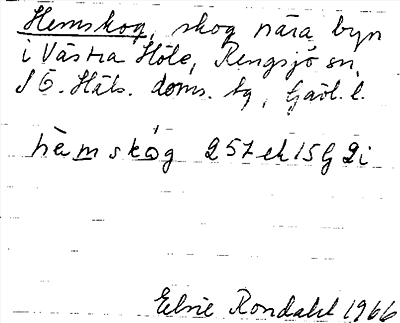 Hemskog, skog nära byn
i Västra Höle, Rengsjö sn,
S Ö. Häls. doms. tg, Gävl. l.
hèmskòg 257 ek 15G 2i
Elsie Rondahl 1966